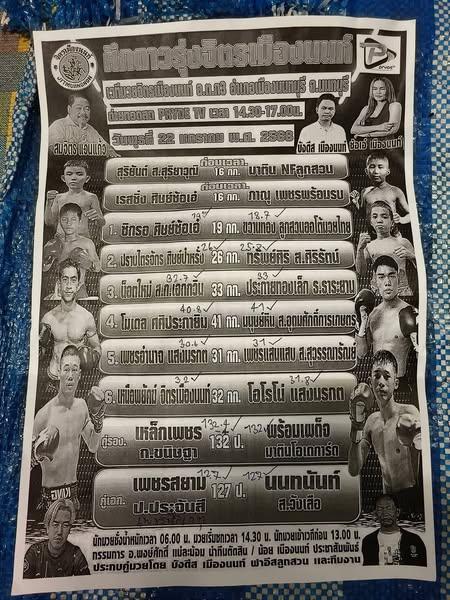 จิตรเมืองนนท์
JITMUANGNON
ศึกดาวรุ่งจิตรเมืองนนท์
เวทีมวยจิตรเมืองนนท์ อ.ต.ก3 อำเภอเมืองนนทบุรี จ.นนทบุรี
ถ่ายทอดสด PRYDE TV เวลา 14.30-17.00น.
วันพุธที่ 22 มกราคม พ.ศ. 2568
บังดีส เมืองนนท์
ก่อนเวลา.
สุริยันต์ ส.สุริยาวุฒิ 16 กก. นาตีน NFลูกสวน
ก่อนเวลา.
เรสซิ่ง ศิษย์ซ้อเอ๋ 16 กก. ภาณุ เพชรพร้อมรบ
19✓ 18.7✓
1. ซิกรอ ศิษย์ซ้อเอ๋ 19 กก. ขวานทอง ลูกสวนออโต้มวยไทย
26✓ 25.8✓
2. ปราบไตรจักร ศิษย์ป๋าหรั่ง 26 กก. ทรัพย์ศิริ ส.ศิริรัตน์
32.7✓ 33✓
33 กก. ประกายทองเล็ก ร.ราระยาน
40.8✓ 41✓
4. โมเดล ศศิประภายิม 41 กก.
30.6✓ 31✓
5. เพชรอำนาจ แสงมรกต 31 กก. เพชรแสนแสบ ส.สุวรรณภักษ์
32✓ 31.8✓
6. เหนือพยัคฆ์ จิตรเมืองนนท์ 32 กก. โอโรโน่ แสงมรกต
132.4✓ 132✓
คู่รอง. เหล็กเพชร 132 ป. พร้อมเพด็จ
ก.ขนิษฐา นาตีนโอเดการ์ด
127✓ 127✓
คู่เอก. เพชรสยาม 127 ป. นนทนันท์
ป.ประจันสี ส.วังเสือ
นักมวยชั่งน้ำหนักเวลา 06.00 น. มวยเริ่มชกเวลา 14.30 น. นักมวยเข้าเวทีก่อน 13.00 น.
กรรมการ อ.พงษ์ศักดิ์ แม่ละม้อน นำทีมตัดสิน / น้อย เมืองนนท์ ประชาสัมพันธ์
ประกบคู่มวยโดย บังดีส เมืองนนท์ ฟาอีสลูกสวน และทีมงาน